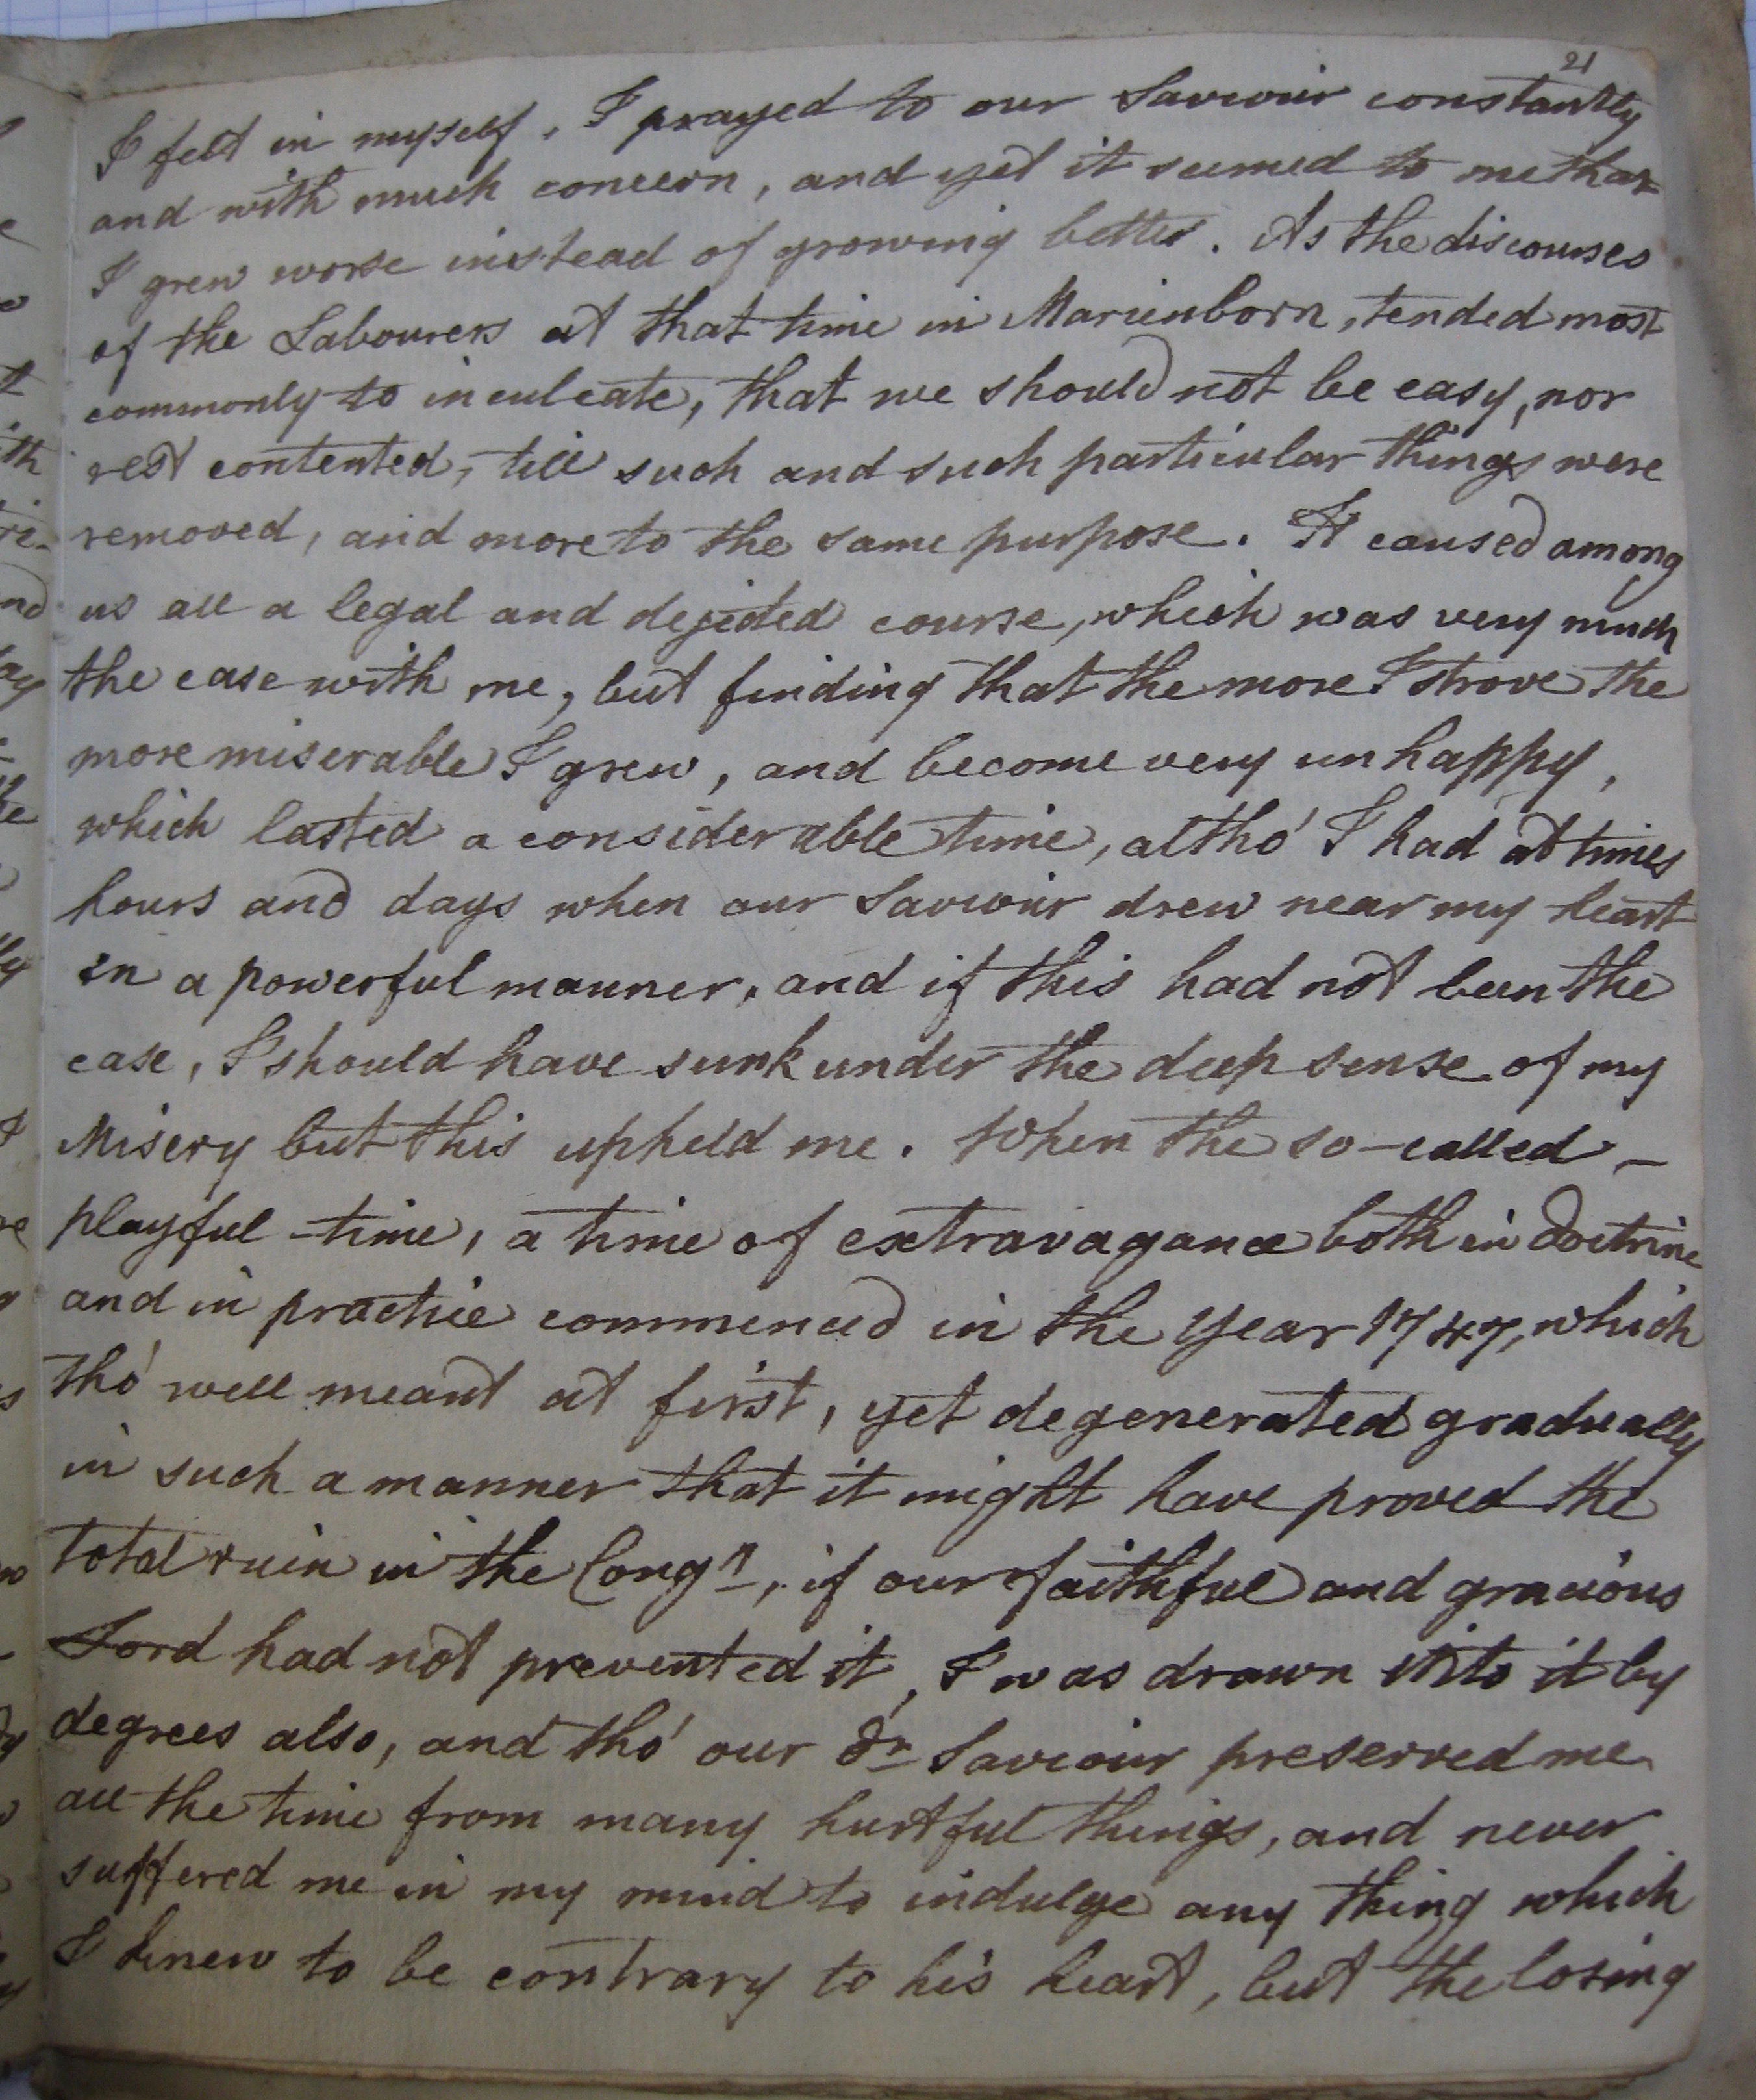 21
I felt in myself, I prayed to our Saviour constantly
and with much concern, and yet it seemed to me that
I grew worse instead of growing better. As the discourses
of the Labourers at that time in Marienborn, tended most
commonly to inculcate, that we should not be easy, nor
rest contented, till such and such particular things were
removed, and more to the same purpose. It caused among
us all a legal and dejected course, which was very much
the case with me, but finding that the more I strove the
more miserable I grew, and become very unhappy,
which lasted a considerable time, altho' I had at times
hours and days when our Saviour drew near my heart
in a powerful manner, and if this had not been the
case, I should have sunk under the deep sense of my
Misery but this upheld me. When the so-called -
playful-time, a time of extravagance both in doctrine
and in practice commenced in the year 1747, which
tho' well meant at first, yet degenerated gradually
in such a manner that it might have proved the
total ruin in the Congn, if our faithful and gracious
Lord had not prevented it, I was drawn into it by
degrees also, and tho' our dr Saviour preserved me
all the time from many hurtful things, and never
suffered me in my mind to indulge any thing which
I knew to be contrary to his heart, but the losing